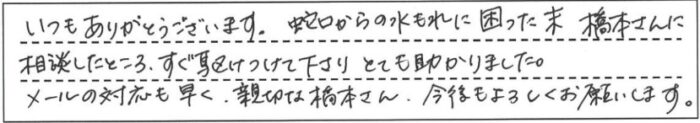 いつもありがとうございます。蛇口からの水もれに困った末 橋本さんに
相談したところ、すぐ駆けつけて下さり とても助かりました。
メールの対応も早く、親切な橋本さん、今後もよろしくお願いします。